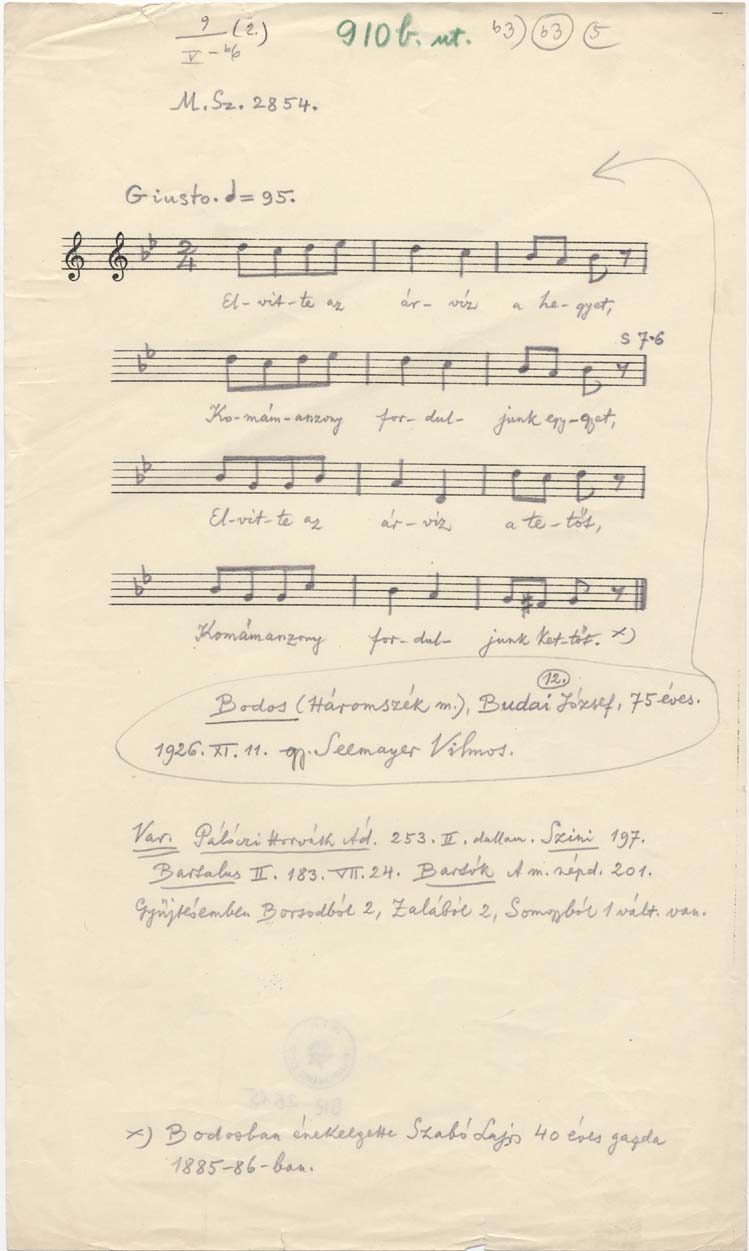 9 (2.)
V – b6
910 b. ut. b3) b3) 5
M. Sz. 2854.
Giusto. d = 95.
2
4
El-vit-te az ár-víz a he-gyet,
S 7-6
Ko-mám-anzony for-dul- junk egy-gyet,
El-vit-te az ár-víz a te-tőt,
Komámanzony for-dul- junk ket-tőt. x)
12.
Bodos (Háromszék m.), Budai József, 75 éves.
1926. XI. 11. gy. Seemayer Vilmos.
Var. Pálóczi Horváth Ád. 253. II. dallam. Szini 197.
Bartalus II. 183. VII. 24. Bartók A m. népd. 201.
Gyűjtésemben Borsodból 2, Zalából 2, Somogyból 1 vált. van.
x) Bodosban énekelgette Szabó Lajos 40 éves gazda
1885-86-ban.